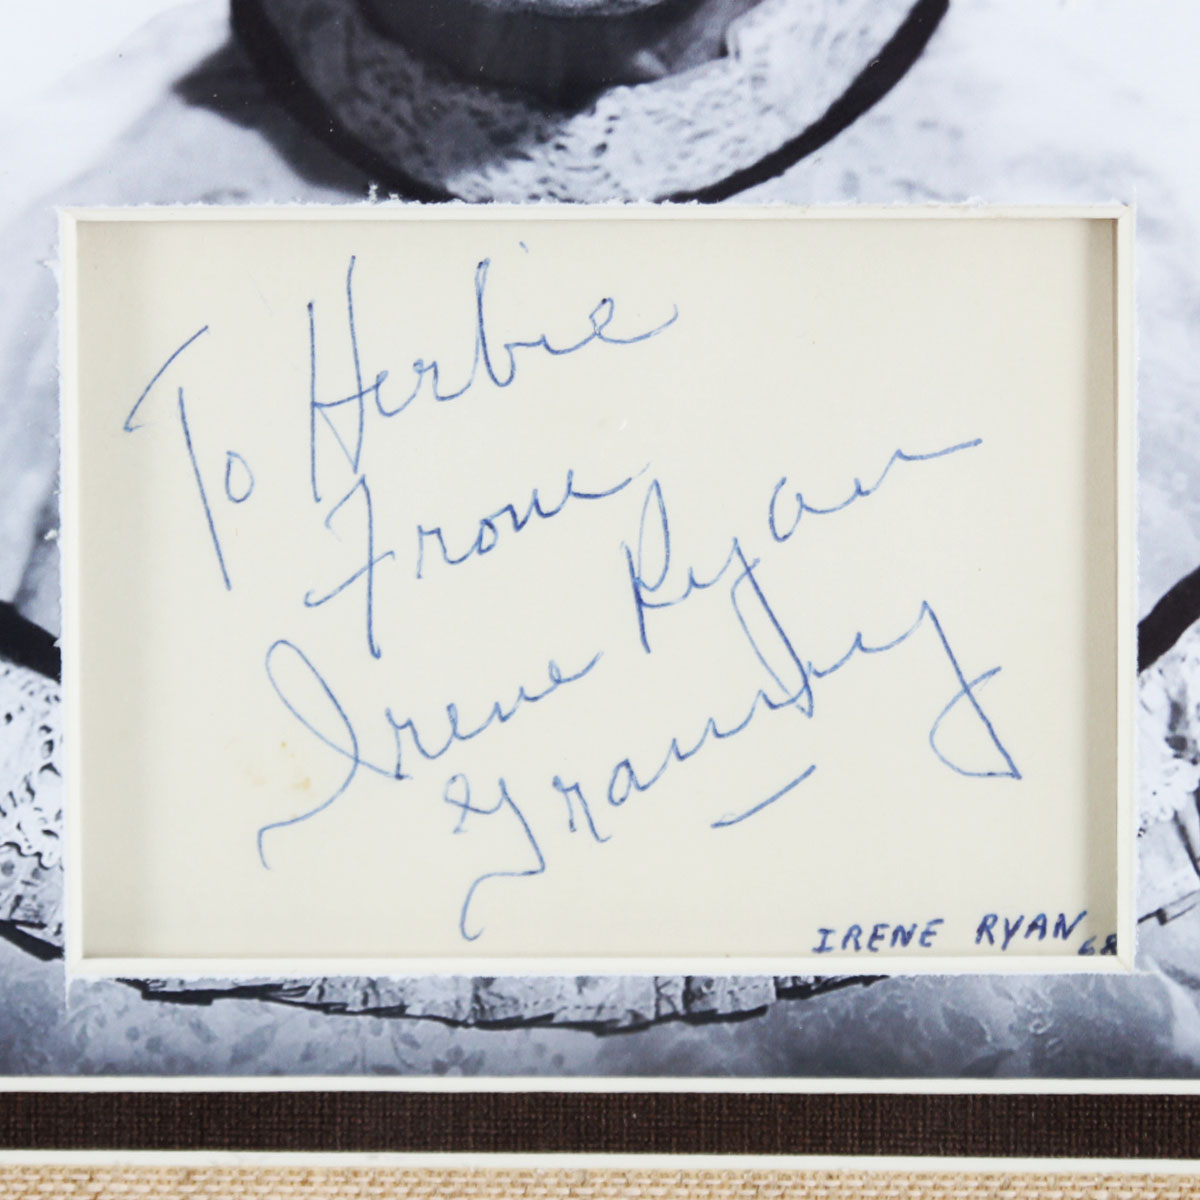 To Herbie
From
Irene Ryan
Granny
IRENE RYAN 68